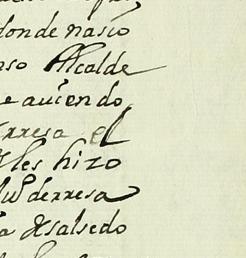 donde nasio
nso Alcalde
e auiendo
rresa el
les hizo
derresa
a Salsedo